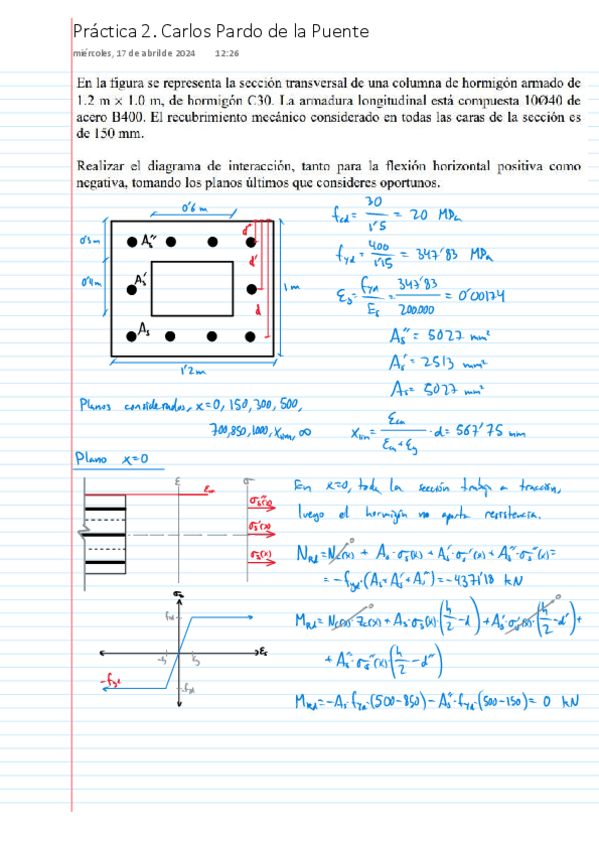 Práctica 2. Carlos Pardo de la Puente
miércoles, 17 de abril de 2024 12:26
En la figura se representa la sección transversal de una columna de hormigón armado de
1.2 m × 1.0 m, de hormigón C30. La armadura longitudinal está compuesta 10Ø40 de
acero B400. El recubrimiento mecánico considerado en todas las caras de la sección es
de 150 mm.
Realizar el diagrama de interacción, tanto para la flexión horizontal positiva como
negativa, tomando los planos últimos que consideres oportunos.
0'6 m
0'3m
0'4m
As''
As'
As
d''
d'
d
1m
1'2m
fcd = 30/1'5 = 20 MPa
fyd = 400/1'15 = 347'83 MPa
εs = fyd/Es = 347'83/200.000 = 0'00174
As'' = 5027 mm²
As' = 2513 mm²
As = 5027 mm²
Planos considerados, x=0, 150, 300, 500,
700, 850, 1000, xlim, ∞
xlim = εcu/(εcu+εy) · d = 567'75 mm
Plano x=0
ε
σ
σs''(x)
σs'(x)
σs(x)
En x=0, toda la sección trabaja a tracción,
luego el hormigón no aporta resistencia.
NRd = Nc(x) + As·σs(x) + As'·σs'(x) + As''·σs''(x) =
= -fyd·(As+As'+As'') = -4371'18 kN
MRd = Nc(x)·zc(x) + As·σs(x)·(h/2 - d) + As'·σs'(x)·(h/2 - d') +
+ As''·σs''(x)(h/2 - d'')
MRd = -As·fyd·(500-850) - As''·fyd·(500-150) = 0 kN
σs
fyd
εs
-fyd
-fyd